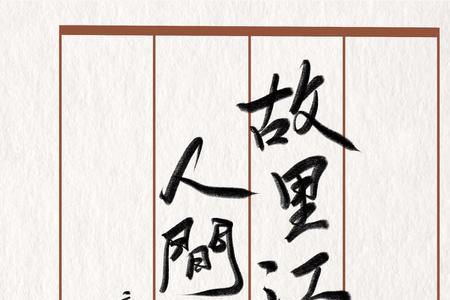 故里江
人間